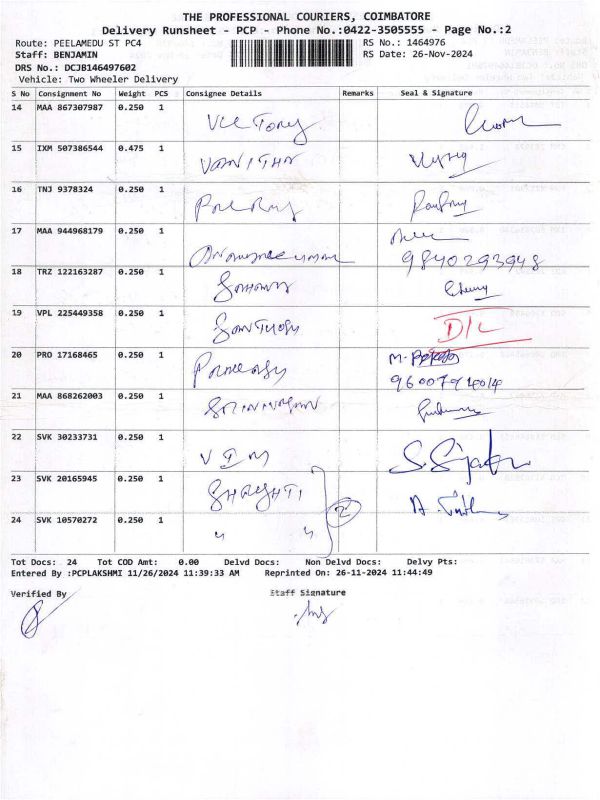 THE PROFESSIONAL COURIERS, COIMBATORE
Delivery Runsheet - PCP - Phone No.:0422-3505555 - Page No.:2
Route: PEELAMEDU ST PC4 RS No.: 1464976
Staff: BENJAMIN RS Date: 26-Nov-2024
DRS No.: DCJB146497602
Vehicle: Two Wheeler Delivery
S No Consignment No Weight PCS Consignee Details Remarks Seal & Signature
14 MAA 867307987 0.250 1
Victory
15 IXM 507386544 0.475 1
VANITHA
16 TNJ 9378324 0.250 1
17 MAA 944968179 0.250 1
9840293948
18 TRZ 122163287 0.250 1
19 VPL 225449358 0.250 1
Santhosh D/L
20 PRO 17168465 0.250 1
9600794014
21 MAA 868262003 0.250 1
22 SVK 30233731 0.250 1
23 SVK 20165945 0.250 1
SHAKHTI 2
24 SVK 10570272 0.250 1
" "
Tot Docs: 24 Tot COD Amt: 0.00 Delvd Docs: Non Delvd Docs: Delvy Pts:
Entered By :PCPLAKSHMI 11/26/2024 11:39:33 AM Reprinted On: 26-11-2024 11:44:49
Verified By Staff Signature